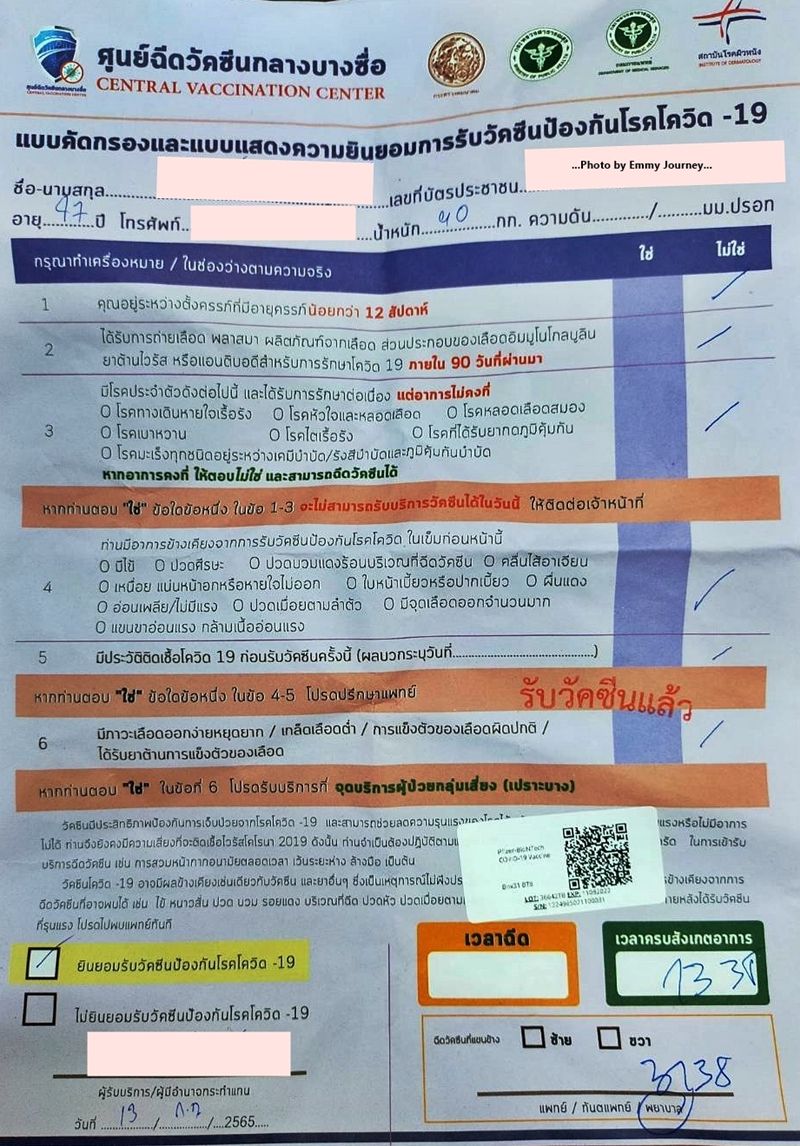 ศูนย์ฉีดวัคซีนกลางบางซื่อ
CENTRAL VACCINATION CENTER
ศูนย์ฉีดวัคซีนกลางบางซื่อ
CENTRAL VACCINATION CENTER
กระทรวงคมนาคม
กระทรวงสาธารณสุข
MINISTRY OF PUBLIC HEALTH
กรมการแพทย์
DEPARTMENT OF MEDICAL SERVICES
สถาบันโรคผิวหนัง
INSTITUTE OF DERMATOLOGY
แบบคัดกรองและแบบแสดงความยินยอมการรับวัคซีนป้องกันโรคโควิด -19
...Photo by Emmy Journey...
ชื่อ-นามสกุล..........เลขที่บัตรประชาชน..........
อายุ...47...ปี โทรศัพท์..........น้ำหนัก...40...กก. ความดัน........../..........มม.ปรอท
กรุณาทำเครื่องหมาย / ในช่องว่างตามความจริง ใช่ ไม่ใช่
1 คุณอยู่ระหว่างตั้งครรภ์ที่มีอายุครรภ์น้อยกว่า 12 สัปดาห์
2 ได้รับการถ่ายเลือด พลาสมา ผลิตภัณฑ์จากเลือด ส่วนประกอบของเลือดอิมมูโนโกลบูลิน
ยาต้านไวรัส หรือแอนติบอดีสำหรับการรักษาโควิด 19 ภายใน 90 วันที่ผ่านมา
3 มีโรคประจำตัวดังต่อไปนี้ และได้รับการรักษาต่อเนื่อง แต่อาการไม่คงที่
O โรคทางเดินหายใจเรื้อรัง O โรคหัวใจและหลอดเลือด O โรคหลอดเลือดสมอง
O โรคเบาหวาน O โรคไตเรื้อรัง O โรคที่ได้รับยากดภูมิคุ้มกัน
O โรคมะเร็งทุกชนิดอยู่ระหว่างเคมีบำบัด/รังสีบำบัดและภูมิคุ้มกันบำบัด
หากอาการคงที่ ให้ตอบไม่ใช่ และสามารถฉีดวัคซีนได้
หากท่านตอบ "ใช่" ข้อใดข้อหนึ่ง ในข้อ 1-3 จะไม่สามารถรับบริการวัคซีนได้ในวันนี้ ให้ติดต่อเจ้าหน้าที่
4 ท่านมีอาการข้างเคียงจากการรับวัคซีนป้องกันโรคโควิด ในเข็มก่อนหน้านี้
O มีไข้ O ปวดศีรษะ O ปวดบวมแดงร้อนบริเวณที่ฉีดวัคซีน O คลื่นไส้อาเจียน
O เหนื่อย แน่นหน้าอกหรือหายใจไม่ออก O ใบหน้าเบี้ยวหรือปากเบี้ยว O ผื่นแดง
O อ่อนเพลีย/ไม่มีแรง O ปวดเมื่อยตามลำตัว O มีจุดเลือดออกจำนวนมาก
O แขนขาอ่อนแรง กล้ามเนื้ออ่อนแรง
5 มีประวัติติดเชื้อโควิด 19 ก่อนรับวัคซีนครั้งนี้ (ผลบวกระบุวันที่..............................)
หากท่านตอบ "ใช่" ข้อใดข้อหนึ่ง ในข้อ 4-5 โปรดปรึกษาแพทย์
รับวัคซีนแล้ว
6 มีภาวะเลือดออกง่ายหยุดยาก / เกล็ดเลือดต่ำ / การแข็งตัวของเลือดผิดปกติ /
ได้รับยาต้านการแข็งตัวของเลือด
หากท่านตอบ "ใช่" ในข้อที่ 6 โปรดรับบริการที่ จุดบริการผู้ป่วยกลุ่มเสี่ยง (เปราะบาง)
วัคซีนมีประสิทธิภาพป้องกันการเจ็บป่วยจากโรคโควิด -19 และสามารถช่วยลดความรุนแรงของโรค แรงหรือไม่มีอาการ
ไม่ได้ ท่านจึงยังคงมีความเสี่ยงที่จะติดเชื้อไวรัสโคโรนา 2019 ดังนั้น ท่านจำเป็นต้องปฏิบัติตาม ในการเข้ารับ
บริการฉีดวัคซีน เช่น การสวมหน้ากากอนามัยตลอดเวลา เว้นระยะห่าง ล้างมือ เป็นต้น
วัคซีนโควิด -19 อาจมีผลข้างเคียงเช่นเดียวกับวัคซีน และยาอื่นๆ ซึ่งเป็นเหตุการณ์ไม่พึงประ ข้างเคียงจากการ
ฉีดวัคซีนที่อาจพบได้ เช่น ไข้ หนาวสั่น ปวด บวม รอยแดง บริเวณที่ฉีด ปวดหัว ปวดเมื่อยตาม ภายหลังได้รับวัคซีน
ที่รุนแรง โปรดไปพบแพทย์ทันที
Pfizer-BioNTech
COVID-19 Vaccine
LOT: EXP: 11092022
เวลาฉีด
เวลาครบสังเกตอาการ
1338
ยินยอมรับวัคซีนป้องกันโรคโควิด -19
ไม่ยินยอมรับวัคซีนป้องกันโรคโควิด -19
ฉีดวัคซีนที่แขนข้าง ซ้าย ขวา
แพทย์ / ทันตแพทย์ / พยาบาล
ผู้รับบริการ/ผู้มีอำนาจกระทำแทน
วันที่ ...13.../...ก.ค.../...2565.....